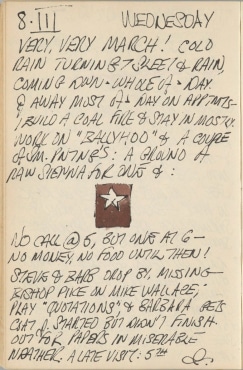 8·III WEDNESDAY
VERY, VERY MARCH! COLD
RAIN TURNING T' SLEET & RAIN,
COMING DOWN - WHOLE OF A - DAY.
AWAY MOST OF A - DAY ON APPTMTS -
I BUILD A COAL FIRE & STAY IN MOSTLY.
WORK ON "BALLYHOO" & A COUPLE
OF SM. PNTNGS: A GROUND OF
RAW SIENNA FOR ONE & :
NO CALL @ 5, BUT ONE AT 6 -
NO MONEY, NO FOOD UNTIL THEN!
STEVE & BARB DROP BY, MISSING
BISHOP PIKE ON MIKE WALLACE;
PLAY "QUOTATIONS", & BARBARA GETS
COAT STARTED BUT DIDN'T FINISH.
OUT FOR PAPERS IN MISERABLE
WEATHER. A LATE VISIT: 5TH